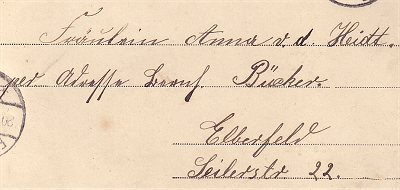 Fräulein Anna v. d. Heidt.
per Adresse Bernh. Bücker.
Elberfeld
Seilerstr 22.